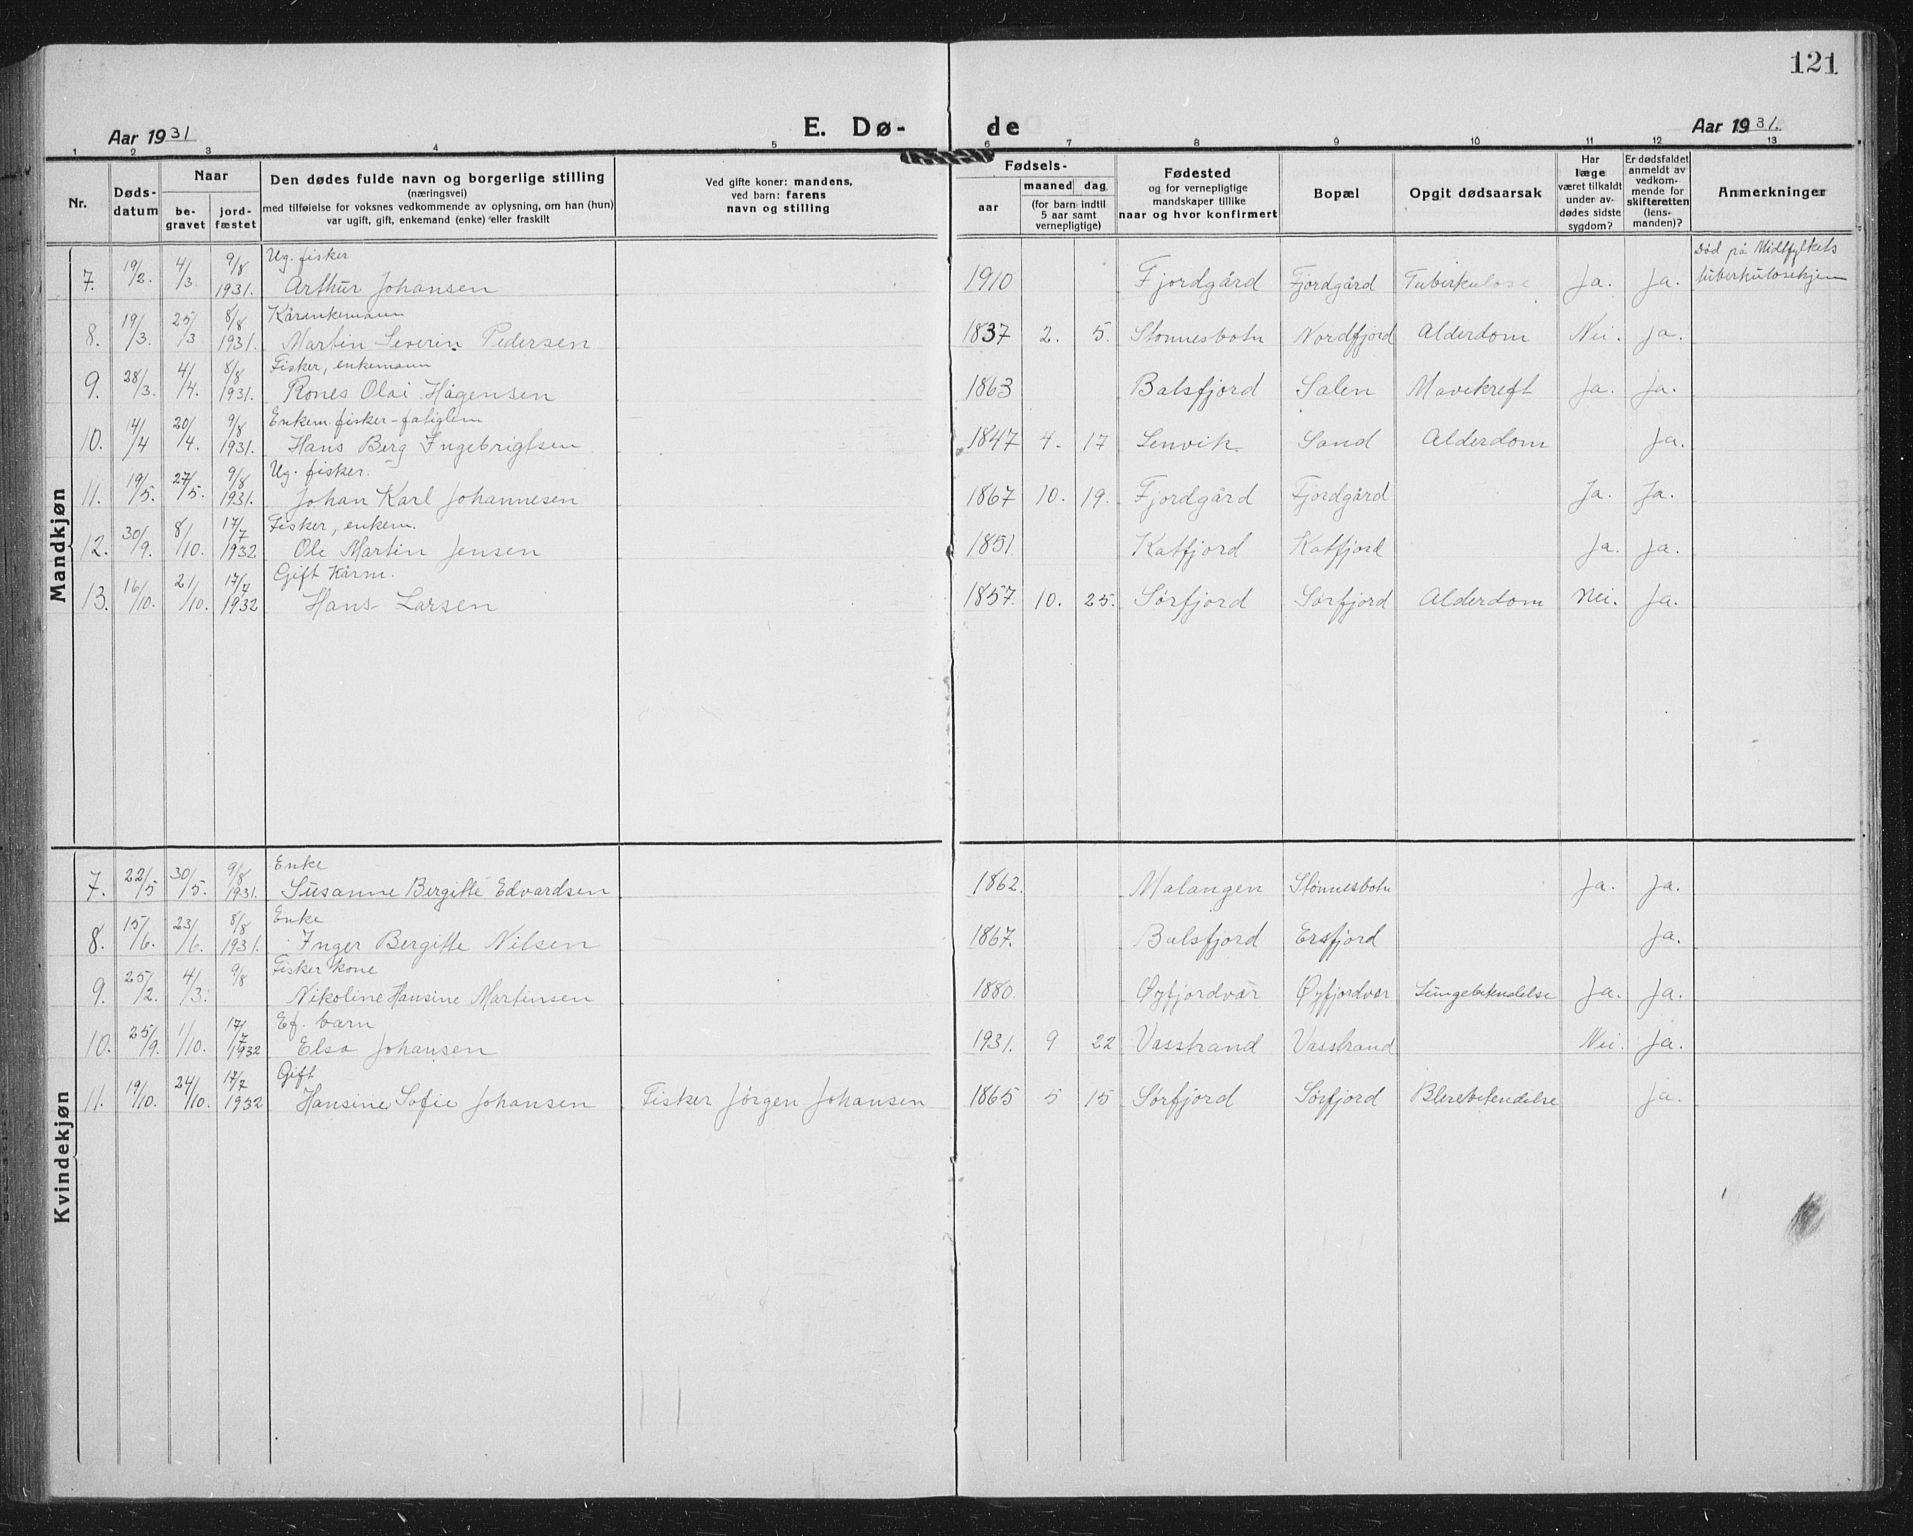 121
Aar 1931
E. Dø-
de
Aar 1931.
1 2 3 4 5 6 7 8 9 10 11 12 13
Nr.
Døds-
datum
Naar
be-
gravet
jord-
fæstet
Den dødes fulde navn og borgerlige stilling
(næringsvei)
med tilføielse for voksnes vedkommende av oplysning, om han (hun)
var ugift, gift, enkemand (enke) eller fraskilt
Ved gifte koner: mandens,
ved barn: farens
navn og stilling
Fødsels-
aar
maaned
dag
(for barn indtil
5 aar samt
vernepligtige)
Fødested
og for vernepligtige
mandskaper tillike
naar og hvor konfirmert
Bopæl
Opgit dødsaarsak
Har
læge
været tilkaldt
under av-
dødes sidste
sygdom?
Er dødsfaldet
anmeldt av
vedkom-
mende for
skifteretten
(lens-
manden)?
Anmerkninger
Mandkjøn
Ug. fisker
7. 19/2. 4/3. 9/8 1931. Arthur Johansen 1910 Fjordgård Fjordgård Tuberkulose Ja. Ja. Død på Midtfylkets
tuberkulosehjem
Kårenkemann
8. 19/3. 25/3 8/8 1931. Martin Severin Pedersen 1837 2. 5. Stønnesbotn Nordfjord Alderdom Nei. Ja.
Fisker, enkemann
9. 28/3. 4/4. 8/8 1931. Rones Olai Hågensen 1863 Balsfjord Salen Mavekreft Ja. Ja.
Enkem. fisker -
10. 14/4 20/4. 9/8 1931. Hans Berg Ingebrigtsen 1847 4. 17 Lenvik Sand Alderdom Ja.
Ug. fisker.
11. 19/5. 27/5. 9/8 1931. Johan Karl Johannesen 1867 10. 19. Fjordgård Fjordgård Ja. Ja.
Fisker, enkem.
12. 30/9. 8/10. 17/7 1932 Ole Martin Jensen 1851. Katfjord Katfjord Ja. Ja.
Gift Kårm.
13. 16/10. 21/10. 17/7 1932 Hans Larsen 1857. 10. 25. Sørfjord Sørfjord Alderdom Nei. Ja.
Kvindekjøn
Enke
7. 22/5 30/5. 9/8 1931. Susanne Bergitte Edvardsen 1862. Malangen Stønnesbotn Ja. Ja.
Enke
8. 15/6. 23/6. 8/8 1931. Inger Bergitte Nilsen 1867. Balsfjord Ersfjord Ja.
Fisker kone
9. 25/2. 4/3. 9/8 Nikoline Hansine Martinsen 1880. Øyfjordvær Øyfjordvær Lungebetendelse Ja. Ja.
Ef. barn
10. 25/9. 1/10. 17/7 1932 Elsa Johansen 1931. 9 22 Vasstrand Vasstrand Nei. Ja.
Gift
11. 19/10. 24/10. 17/7 1932 Hansine Sofie Johansen Fisker Jørgen Johansen 1865 5 15 Sørfjord Sørfjord Blerebetendelse Ja.